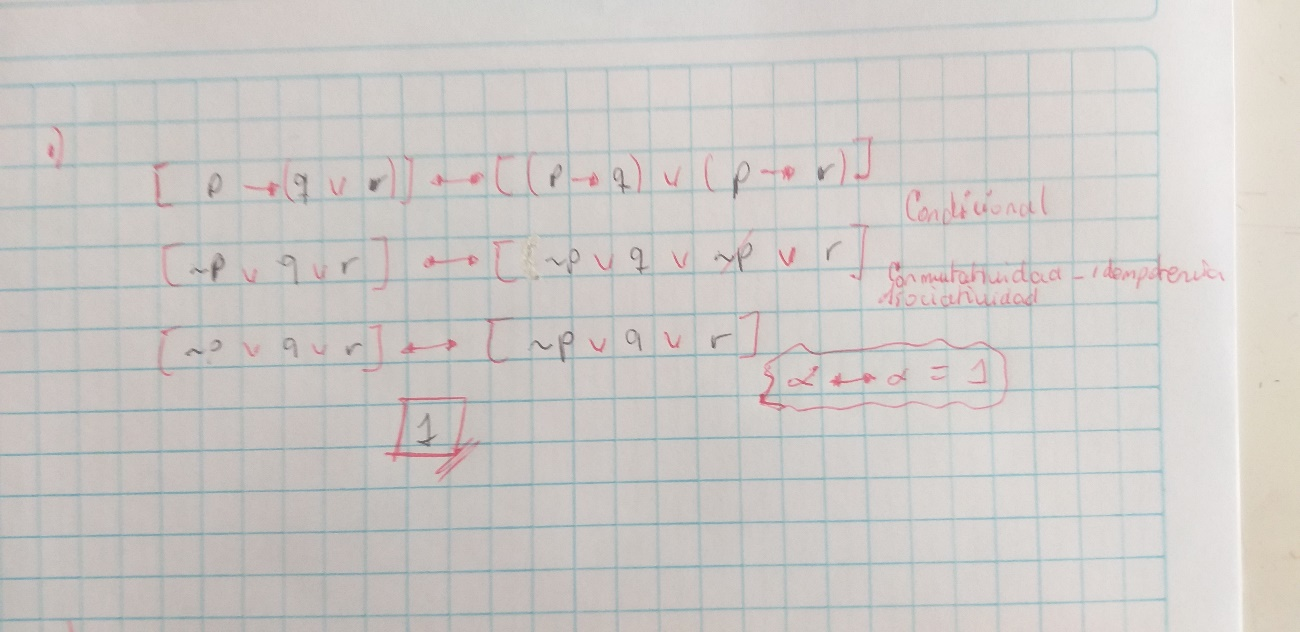 1)
[ p → (q ∨ r)] ↔ [(p → q) ∨ (p → r)]
Condicional
[~p ∨ q ∨ r] ↔ [~p ∨ q ∨ ~p ∨ r]
Conmutatividad - idempotencia
Asociatividad
[~p ∨ q ∨ r] ↔ [~p ∨ q ∨ r]
α ↔ α = 1
1